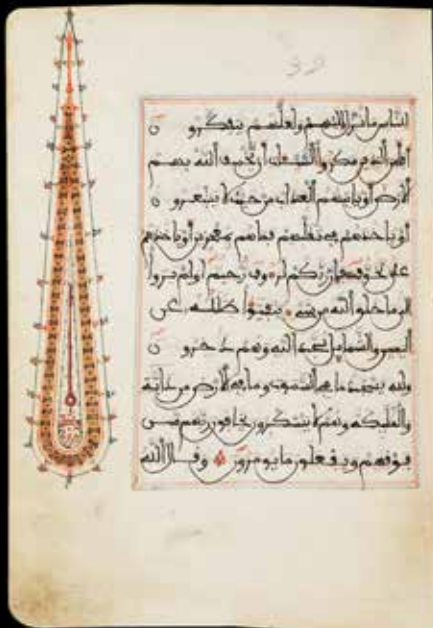 للناس ما نزل إليهم ولعلهم يتفكرون
أفأمن الذين مكروا السيئات أن يخسف الله بهم
الأرض أو يأتيهم العذاب من حيث لا يشعرون
أو يأخذهم في تقلبهم فما هم بمعجزين أو يأخذهم
على تخوف فإن ربكم لرءوف رحيم أولم يروا
إلى ما خلق الله من شيء يتفيؤا ظلله عن
اليمين والشمايل سجدا لله وهم دخرون
ولله يسجد ما في السموت وما في الأرض من دابة
والمليكة وهم لا يستكبرون يخافون ربهم من
فوقهم ويفعلون ما يومرون وقال الله